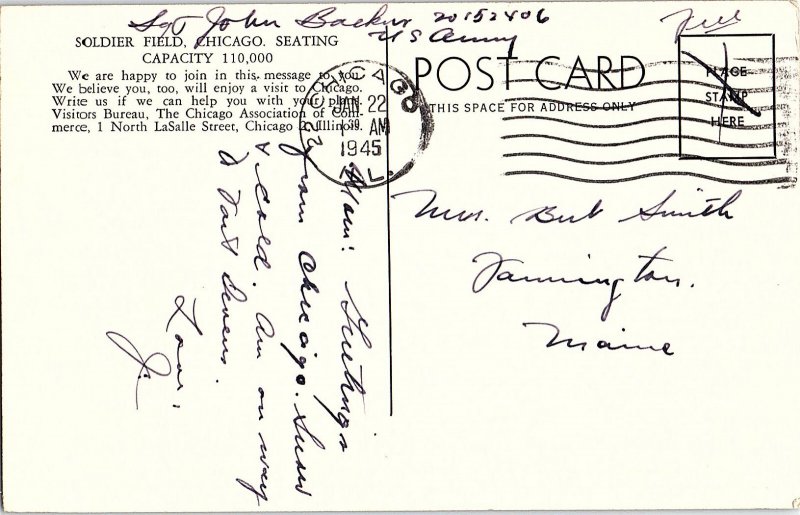 Sgt John Backus 20152406
US Army
Free
SOLDIER FIELD, CHICAGO. SEATING
CAPACITY 110,000
We are happy to join in this message to you.
We believe you, too, will enjoy a visit to Chicago.
Write us if we can help you with your plans.
Visitors Bureau, The Chicago Association of Com-
merce, 1 North LaSalle Street, Chicago 2, Illinois.
CHICAGO
JAN 22
AM
1945
ILL.
POST CARD
THIS SPACE FOR ADDRESS ONLY
PLACE
STAMP
HERE
Mom: Greetings
from Chicago. Snow
& cold. Am on way
to Fort Devens.
Love,
J.
Mrs. Bert Smith
Farmington.
Maine